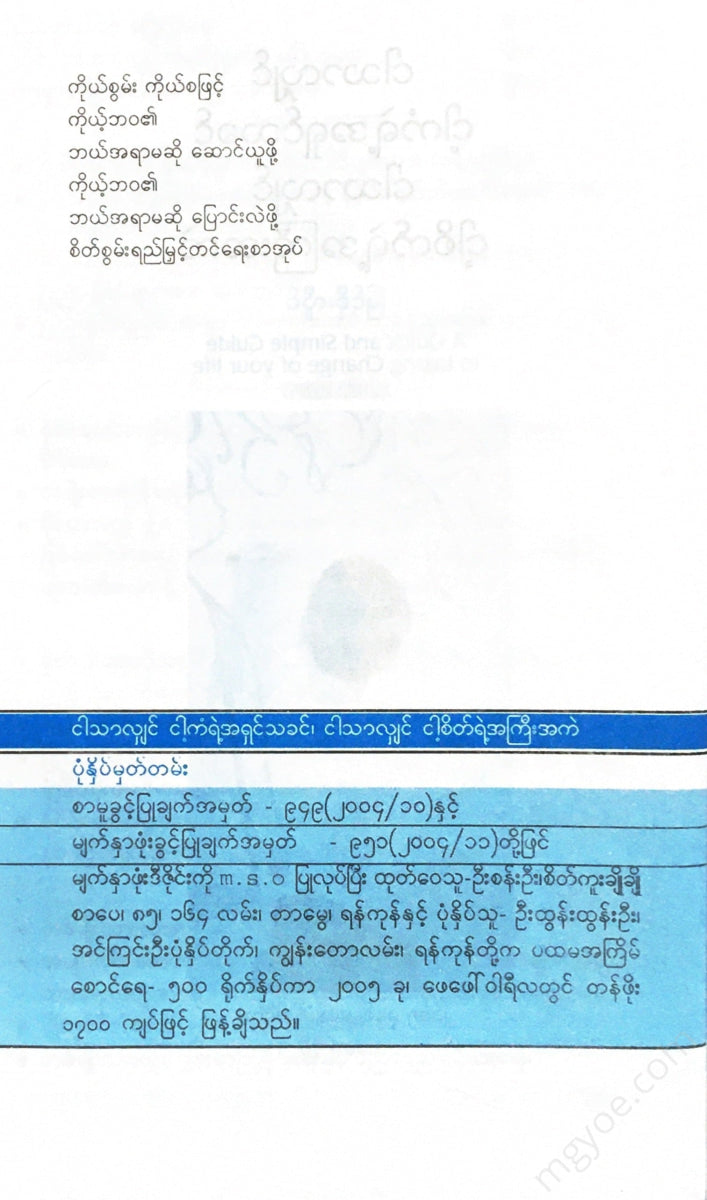 ကိုယ်စွမ်း ကိုယ်စဖြင့်
ကိုယ့်ဘဝ၏
ဘယ်အရာမဆို ဆောင်ယူဖို့
ကိုယ့်ဘဝ၏
ဘယ်အရာမဆို ပြောင်းလဲဖို့
စိတ်စွမ်းရည်မြှင့်တင်ရေးစာအုပ်
ငါသာလျှင် ငါ့ကံရဲ့အရှင်သခင်၊ ငါသာလျှင် ငါ့စိတ်ရဲ့အကြီးအကဲ
ပုံနှိပ်မှတ်တမ်း
စာမူခွင့်ပြုချက်အမှတ် - ၉၄၉(၂၀၀၄/၁၀)နှင့်
မျက်နှာဖုံးခွင့်ပြုချက်အမှတ် - ၉၅၁(၂၀၀၄/၁၁)တို့ဖြင့်
မျက်နှာဖုံးဒီဇိုင်းကို m.s.o ပြုလုပ်ပြီး ထုတ်ဝေသူ-ဦးစန်းဦး၊စိတ်ကူးချိုချို
စာပေ၊ ၈၅၊ ၁၆၄ လမ်း၊ တာမွေ၊ ရန်ကုန်နှင့် ပုံနှိပ်သူ- ဦးထွန်းထွန်းဦး၊
အင်ကြင်းဦးပုံနှိပ်တိုက်၊ ကျွန်းတောလမ်း၊ ရန်ကုန်တို့က ပထမအကြိမ်
စောင်ရေ- ၅၀၀ ရိုက်နှိပ်ကာ ၂၀၀၅ ခု၊ ဖေဖော်ဝါရီလတွင် တန်ဖိုး
၁၇၀၀ ကျပ်ဖြင့် ဖြန့်ချိသည်။
mgyoe.com